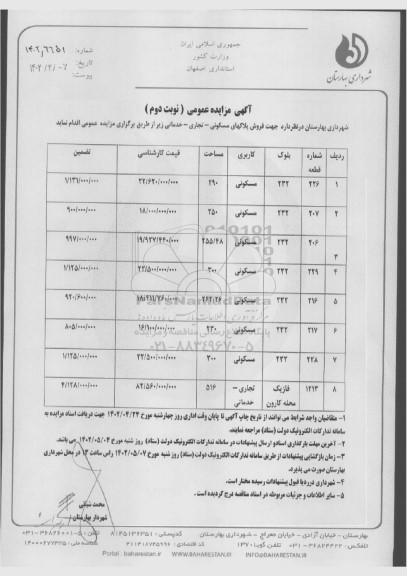 جمهوری اسلامی ایران
وزارت کشور
استانداری اصفهان
شهرداری بهارستان
شماره:
تاریخ:
پیوست:
آگهی مزایده عمومی ( نوبت دوم )
شهرداری بهارستان درنظردارد جهت فروش پلاکهای مسکونی – تجاری – خدماتی زیر از طریق برگزاری مزایده عمومی اقدام نماید
ردیف شماره قطعه بلوک کاربری مساحت قیمت کارشناسی تضمین
۱ ۲۲۶ ۲۳۲ مسکونی ۲۹۰ ۲۲/۶۲۰/۰۰۰/۰۰۰ ۱/۱۳۱/۰۰۰/۰۰۰
۲ ۲۰۷ ۲۳۲ مسکونی ۲۵۰ ۱۸/۰۰۰/۰۰۰/۰۰۰ ۹۰۰/۰۰۰/۰۰۰
۳ ۲۰۶ ۲۳۲ مسکونی ۲۵۵/۴۸ ۱۹/۹۲۷/۴۴۰/۰۰۰ ۹۹۷/۰۰۰/۰۰۰
۴ ۲۲۹ ۲۳۲ مسکونی ۳۰۰ ۲۲/۵۰۰/۰۰۰/۰۰۰ ۱/۱۲۵/۰۰۰/۰۰۰
۵ ۲۱۶ ۲۳۲ مسکونی ۲۶۲/۲۶ ۹۲۰/۶۰۰/۰۰۰
۶ ۲۱۷ ۲۳۲ مسکونی ۲۳۰ ۱۶/۱۰۰/۰۰۰/۰۰۰ ۸۰۵/۰۰۰/۰۰۰
۷ ۲۲۸ ۲۳۲ مسکونی ۳۰۰ ۲۲/۵۰۰/۰۰۰/۰۰۰ ۱/۱۲۵/۰۰۰/۰۰۰
۸ ۱۲۱۳ فازیک محله کارون تجاری – خدماتی ۵۱۶ ۸۲/۵۶۰/۰۰۰/۰۰۰ ۴/۱۲۸/۰۰۰/۰۰۰
۱- متقاضیان واجد شرایط می توانند از تاریخ چاپ آگهی تا پایان وقت اداری روز چهارشنبه مورخ ۱۴۰۲/۰۴/۲۴ جهت دریافت اسناد مزایده به
سامانه تدارکات الکترونیک دولت (ستاد) مراجعه نمایند.
۲- آخرین مهلت بارگذاری اسناد و ارسال پیشنهادات در سامانه تدارکات الکترونیک دولت (ستاد) روز شنبه مورخ ۱۴۰۲/۰۵/۰۴ می باشد.
۳- زمان بازگشایی پیشنهادات از طریق سامانه تدارکات الکترونیک دولت (ستاد) روز شنبه مورخ ۱۴۰۲/۰۵/۰۷ راس ساعت ۱۳ در محل شهرداری
بهارستان صورت می پذیرد.
۴- شهرداری در رد یا قبول پیشنهادات رسیده مختار است.
۵- سایر اطلاعات و جزئیات مربوطه در اسناد مناقصه درج گردیده است.
شهردار بهارستان
ParsNamadData
پایگاه اطلاع رسانی مناقصه و مزایده
۰۲۱-۸۸۳۴۹۶۷۰-۵
بهارستان – خیابان آزادی – خیابان معراج – شهرداری بهارستان کدپستی: ۸۱۴۵۱۳۶۳۵۱
Portal : baharestan.ir WWW.BAHARESTAN.IR INFO@BAHARESTAN.IR